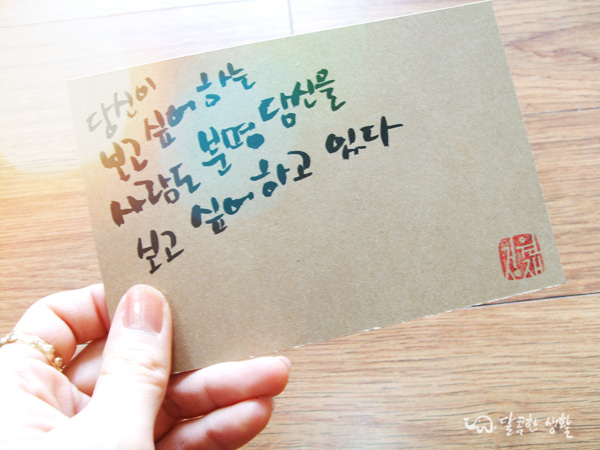 당신이
보고 싶어 하는
사람도 분명 당신을
보고 싶어 하고 있다
달콤한 생활